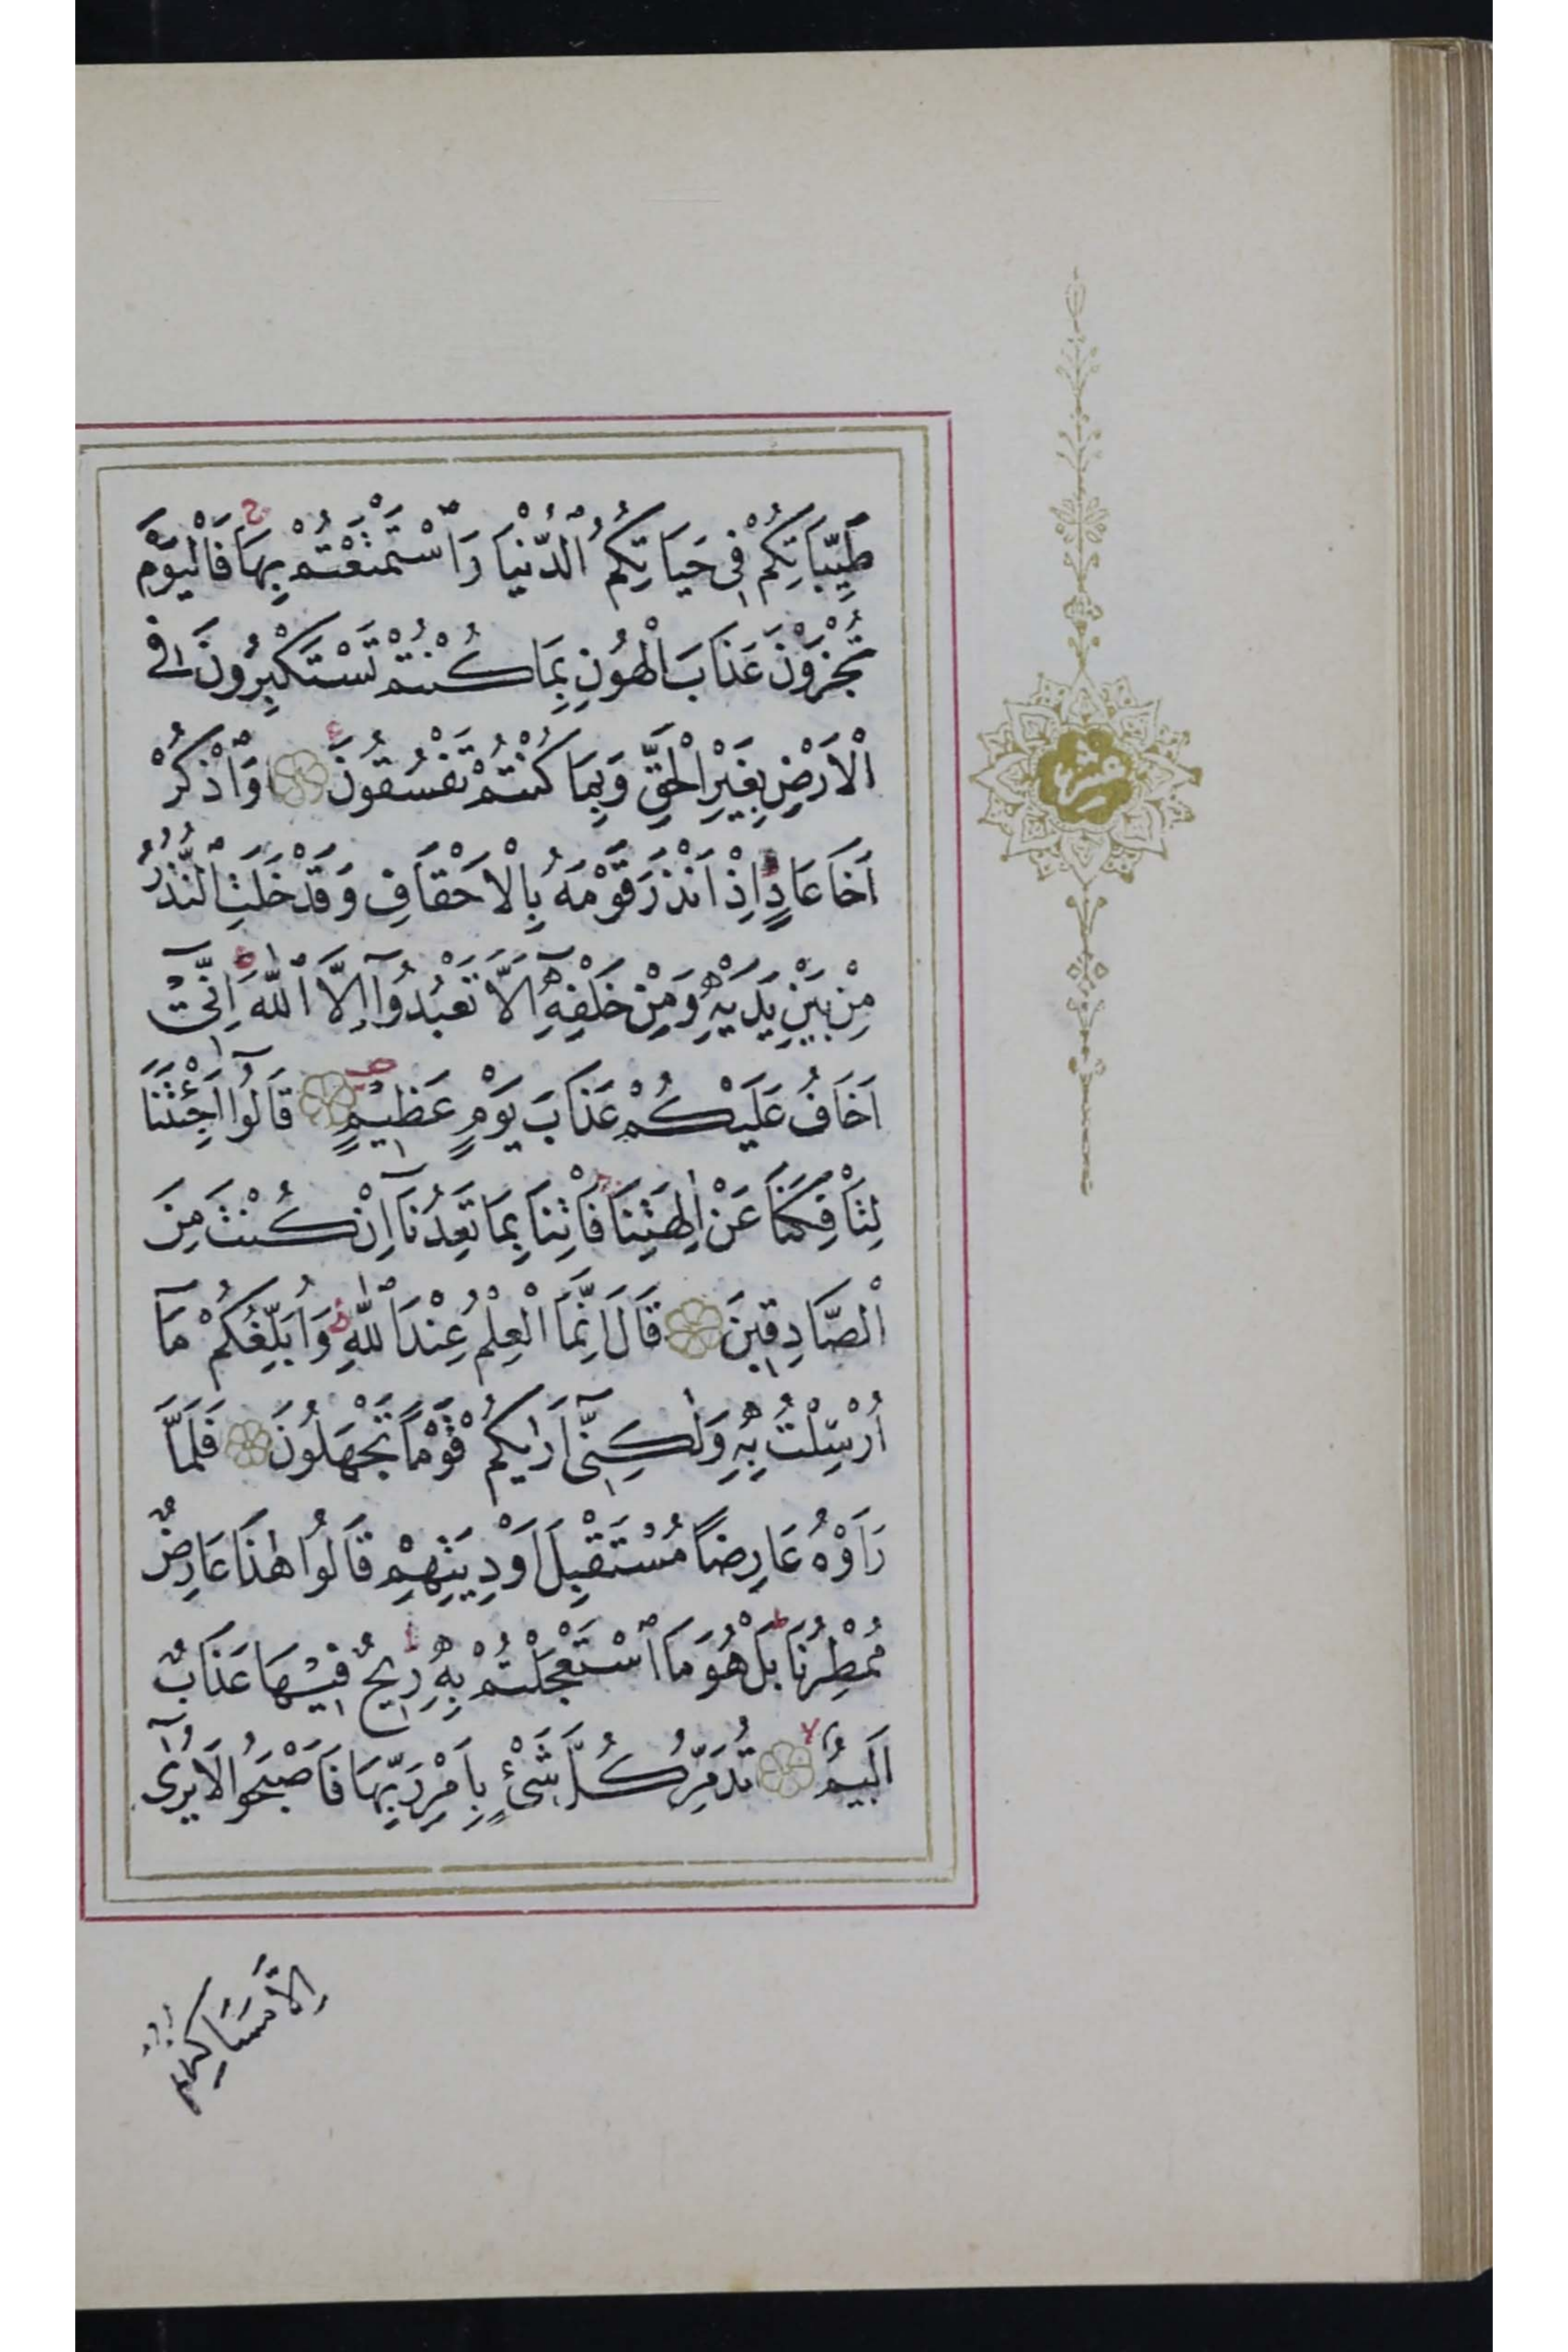 طَيِّبَاتِكُمْ فِى حَيَاتِكُمُ ٱلدُّنْيَا وَٱسْتَمْتَعْتُمْ بِهَا ۚ فَالْيَوْمَ
تُجْزَوْنَ عَذَابَ الْهُونِ بِمَا كُنْتُمْ تَسْتَكْبِرُونَ فِى
الْاَرْضِ بِغَيْرِ الْحَقِّ وَبِمَا كُنْتُمْ تَفْسُقُونَ وَٱذْكُرْ
اَخَا عَادٍ اِذْ اَنْذَرَ قَوْمَهُ بِالْاَحْقَافِ وَقَدْ خَلَتِ ٱلنُّذُرُ
مِنْ بَيْنِ يَدَيْهِ وَمِنْ خَلْفِهِٓ اَلَّا تَعْبُدُوٓا اِلَّا ٱللّٰهَ اِنِّىٓ
اَخَافُ عَلَيْكُمْ عَذَابَ يَوْمٍ عَظِيمٍ قَالُوٓا اَجِئْتَنَا
لِتَأْفِكَنَا عَنْ اٰلِهَتِنَا فَأْتِنَا بِمَا تَعِدُنَٓا اِنْ كُنْتَ مِنَ
الْصَّادِقِينَ قَالَ اِنَّمَا الْعِلْمُ عِنْدَ ٱللّٰهِ وَاُبَلِّغُكُمْ مَٓا
اُرْسِلْتُ بِهِ وَلٰكِنِّىٓ اَرٰيكُمْ قَوْمًا تَجْهَلُونَ فَلَمَّا
رَاَوْهُ عَارِضًا مُسْتَقْبِلَ اَوْدِيَتِهِمْ قَالُوا هٰذَا عَارِضٌ
مُمْطِرُنَا بَلْ هُوَ مَا ٱسْتَعْجَلْتُمْ بِهِ رِيحٌ فِيهَا عَذَابٌ
اَلِيمٌ تُدَمِّرُ كُلَّ شَىْءٍ بِاَمْرِ رَبِّهَا فَاَصْبَحُوا لَا يُرٰىٓ
اِلَّا مَسَاكِنُهُمْ